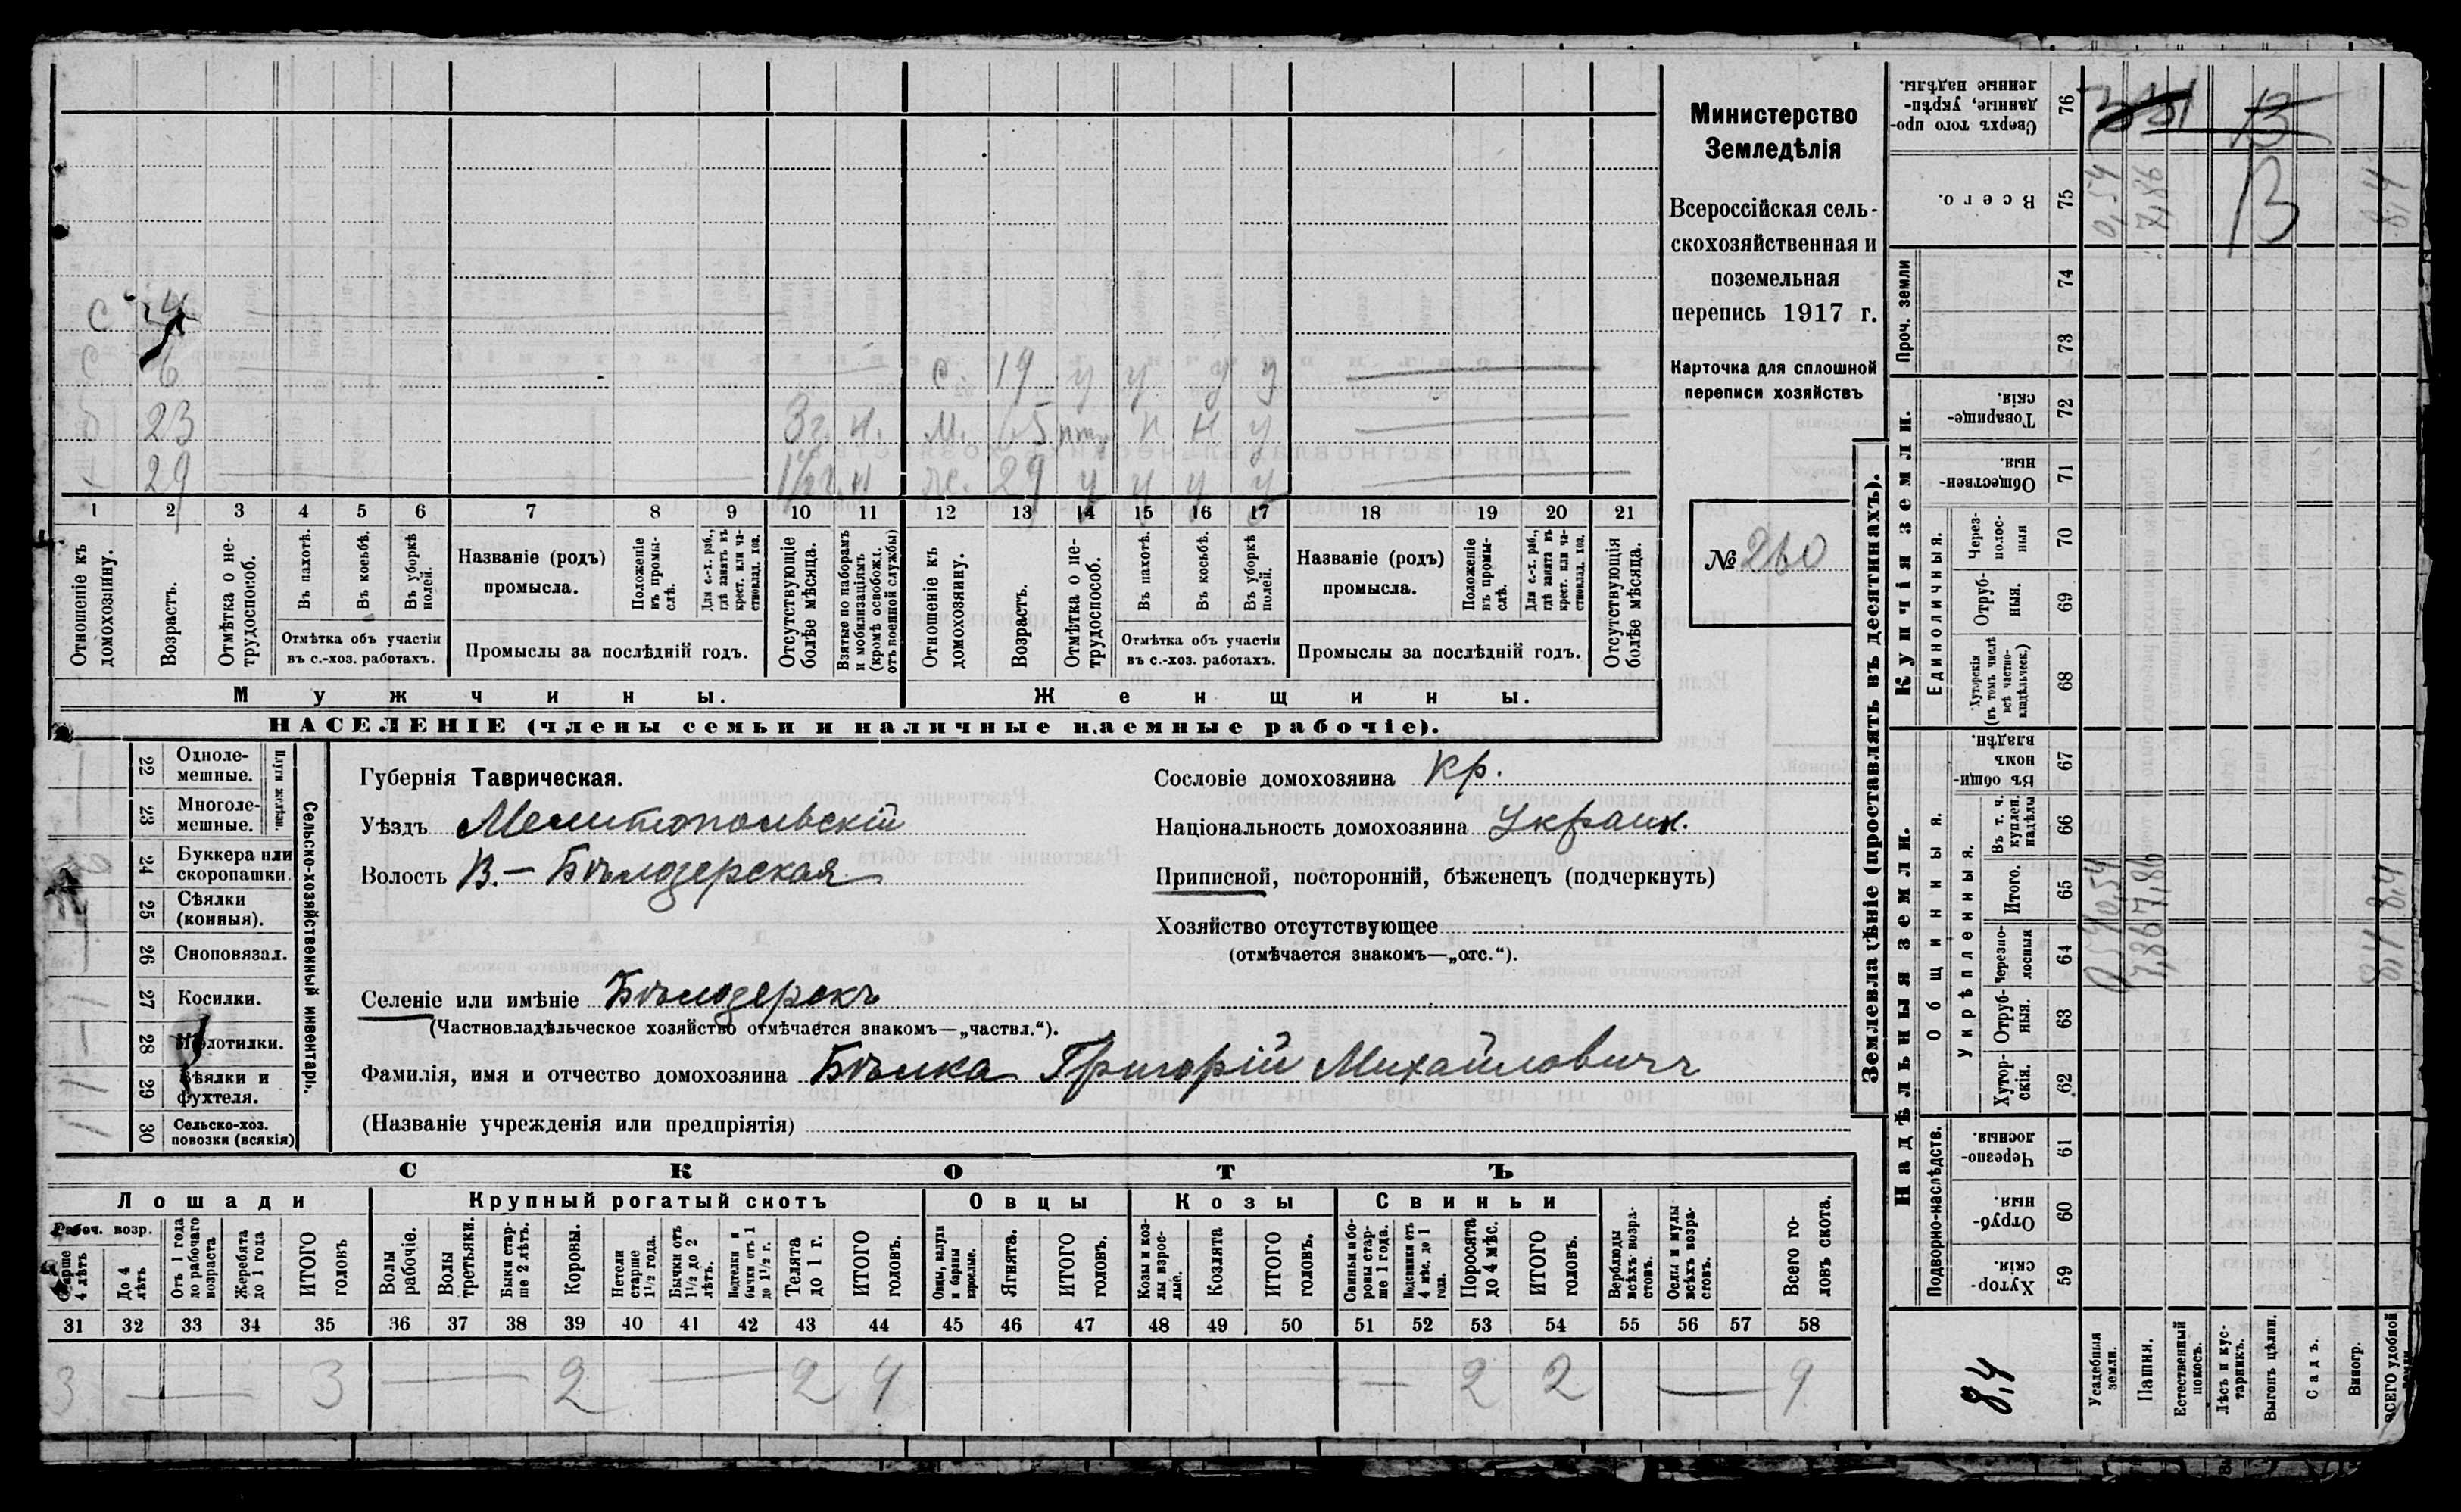 Министерство
Земледѣлія
Всероссійская сель-
скохозяйственная и
поземельная
перепись 1917 г.
Карточка для сплошной
переписи хозяйствъ
№ 260
С
С 6 С 19 у у у у
23 3 г. н. М. 65 н н у
29 1½ г. н ж. 29 у у у у
1 2 3 4 5 6 7 8 9 10 11 12 13 14 15 16 17 18 19 20 21
Отношеніе къ домохозяину.
Возрастъ.
Отмѣтка о не-трудоспособ.
Въ пахотѣ.
Въ косьбѣ.
Въ уборкѣ полей.
Отмѣтка объ участіи
въ с.-хоз. работахъ.
Названіе (родъ)
промысла.
Положеніе въ промы-слѣ.
Для с.-х. раб., гдѣ занятъ въ крест. или ча-стновлад. хоз.
Промыслы за послѣдній годъ.
Отсутствующіе болѣе мѣсяца.
Взятые по наборамъ и мобилизаціямъ (кромѣ освобожд. отъ военной службы)
Отношеніе къ домохозяину.
Возрастъ.
Отмѣтка о не-трудоспособ.
Въ пахотѣ.
Въ косьбѣ.
Въ уборкѣ полей.
Отмѣтка объ участіи
въ с.-хоз. работахъ.
Названіе (родъ)
промысла.
Положеніе въ промы-слѣ.
Для с.-х. раб., гдѣ занята въ крест. или ча-стновлад. хоз.
Промыслы за послѣдній годъ.
Отсутствующія болѣе мѣсяца.
Мужчины.
Женщины.
НАСЕЛЕНІЕ (члены семьи и наличные наемные рабочіе).
Сельско-хозяйственный инвентарь.
Плуги желѣзн.
22 Одноле-мешные.
23 Многоле-мешные.
24 Буккера или скоропашки.
25 Сѣялки (конныя).
26 Сноповязал.
27 Косилки. 1
28 Молотилки.
29 Вѣялки и фухтеля. 1
30 Сельско-хоз. повозки (всякія) 1
Губернія Таврическая.
Уѣздъ Мелитопольскій
Волость В.-Бѣлозерская
Сословіе домохозяина кр.
Національность домохозяина Украин.
Приписной, посторонній, бѣженецъ (подчеркнуть)
Хозяйство отсутствующее
(отмѣчается знакомъ—„отс.“).
Селеніе или имѣніе Бѣлозерскъ
(Частновладѣльческое хозяйство отмѣчается знакомъ—„частвл.“).
Фамилія, имя и отчество домохозяина Бѣлка Григорій Михайловичъ
(Названіе учрежденія или предпріятія)
СКОТЪ
Лошади
Крупный рогатый скотъ
Овцы
Козы
Свиньи
Рабоч. возр.
Старше 4 лѣтъ
До 4 лѣтъ
Отъ 1 года до рабочаго возраста
Жеребята до 1 года
ИТОГО головъ
Волы рабочіе.
Волы третьяки.
Быки стар-ше 2 лѣтъ.
Коровы.
Нетели старше 1½ года.
Бычки отъ 1½ до 2 лѣтъ.
Подтелки и бычки отъ 1 до 1½ г.
Телята до 1 г.
ИТОГО головъ.
Овцы, валухи и бараны взрослые.
Ягнята.
ИТОГО головъ.
Козы и коз-лы взрос-лые.
Козлята
ИТОГО головъ.
Свиньи и бо-ровы стар-ше 1 года.
Подсвинки отъ 4 мѣс. до 1 года.
Поросята до 4 мѣс.
ИТОГО головъ.
Верблюды всѣхъ возра-стовъ.
Ослы и мулы всѣхъ возра-стовъ.
Всего го-ловъ скота.
31 32 33 34 35 36 37 38 39 40 41 42 43 44 45 46 47 48 49 50 51 52 53 54 55 56 57 58
3 — 3 — 2 — 2 4 — 2 2 — 9
Землевладѣніе (проставлять въ десятинахъ).
Надѣльныя земли.
Купчія земли.
Проч. земли
Подворно-наслѣдств.
Общинныя.
Укрѣпленныя.
Единоличныя.
76 Сверхъ того про-данные, укрѣп-ленные надѣлы.
75 Всего. 0,54 7,86 13 8,4
74
73
72 Товарище-скія.
71 Обществен-ныя.
70 Через-полос-ныя
69 Отруб-ныя.
68 Хуторскія (въ томъ числѣ всѣ частно-владѣльческ.)
67 Въ общин-номъ владѣн.
66 Въ т. ч. куплен. надѣлы
65 Итого. 0,54 7,86 8,4
64 Черезпо-лосныя 0,54 7,86 8,4
63 Отруб-ныя.
62 Хутор-скія.
61 Черезпо-лосныя.
60 Отруб-ныя.
59 Хутор-скія.
8,4
Усадебныя земли.
Пашня.
Естественный покосъ.
Лѣсъ и кус-тарникъ.
Выгонъ цѣлин.
Садъ.
Виногр.
ВСЕГО удобной земли